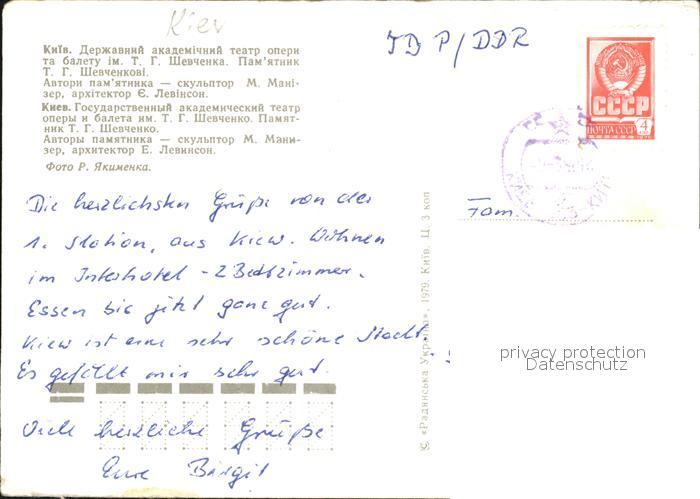 Kiev
Київ. Державний академічний театр опери
та балету ім. Т. Г. Шевченка. Пам'ятник
Т. Г. Шевченкові.
Автори пам'ятника — скульптор М. Мані-
зер, архітектор Є. Левінсон.
Киев. Государственный академический театр
оперы и балета им. Т. Г. Шевченко. Памят-
ник Т. Г. Шевченко.
Авторы памятника — скульптор М. Мани-
зер, архитектор Е. Левинсон.
Фото Р. Якименка.
ГДР/DDR
СССР
ПОЧТА СССР 4
Die herzlichsten Grüße von der
1. Station, aus Kiew. Wohnen
im Interhotel - 2 Bettzimmer.
Essen bis jetzt ganz gut.
Kiew ist eine sehr schöne Stadt
Es gefällt mir sehr gut.
Viele herzliche Grüße
Eure Birgit
Fam.
© «Радянська Україна», 1979. Київ. Ц. 3 коп
privacy protection
Datenschutz